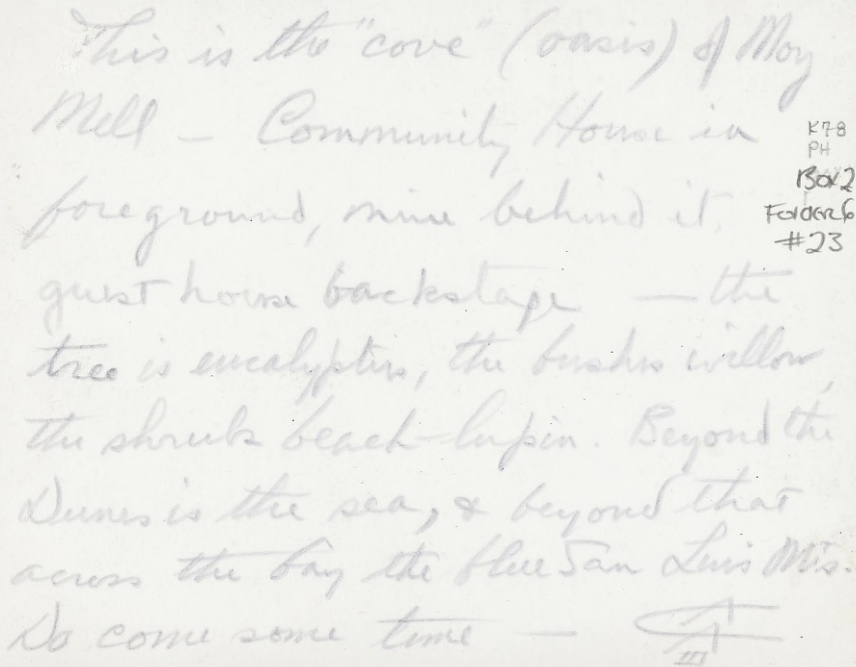 This is the "cove" (oasis) of Moy
Mell — Community House in
foreground, mine behind it,
guest house backstage — the
tree is eucalyptus, the bushes willow,
the shrubs beach-lupin. Beyond the
Dunes is the sea, & beyond that
across the bay the blue San Luis Mts.
Do come some time —
III
K78
PH
Box 2
Folder 6
#23